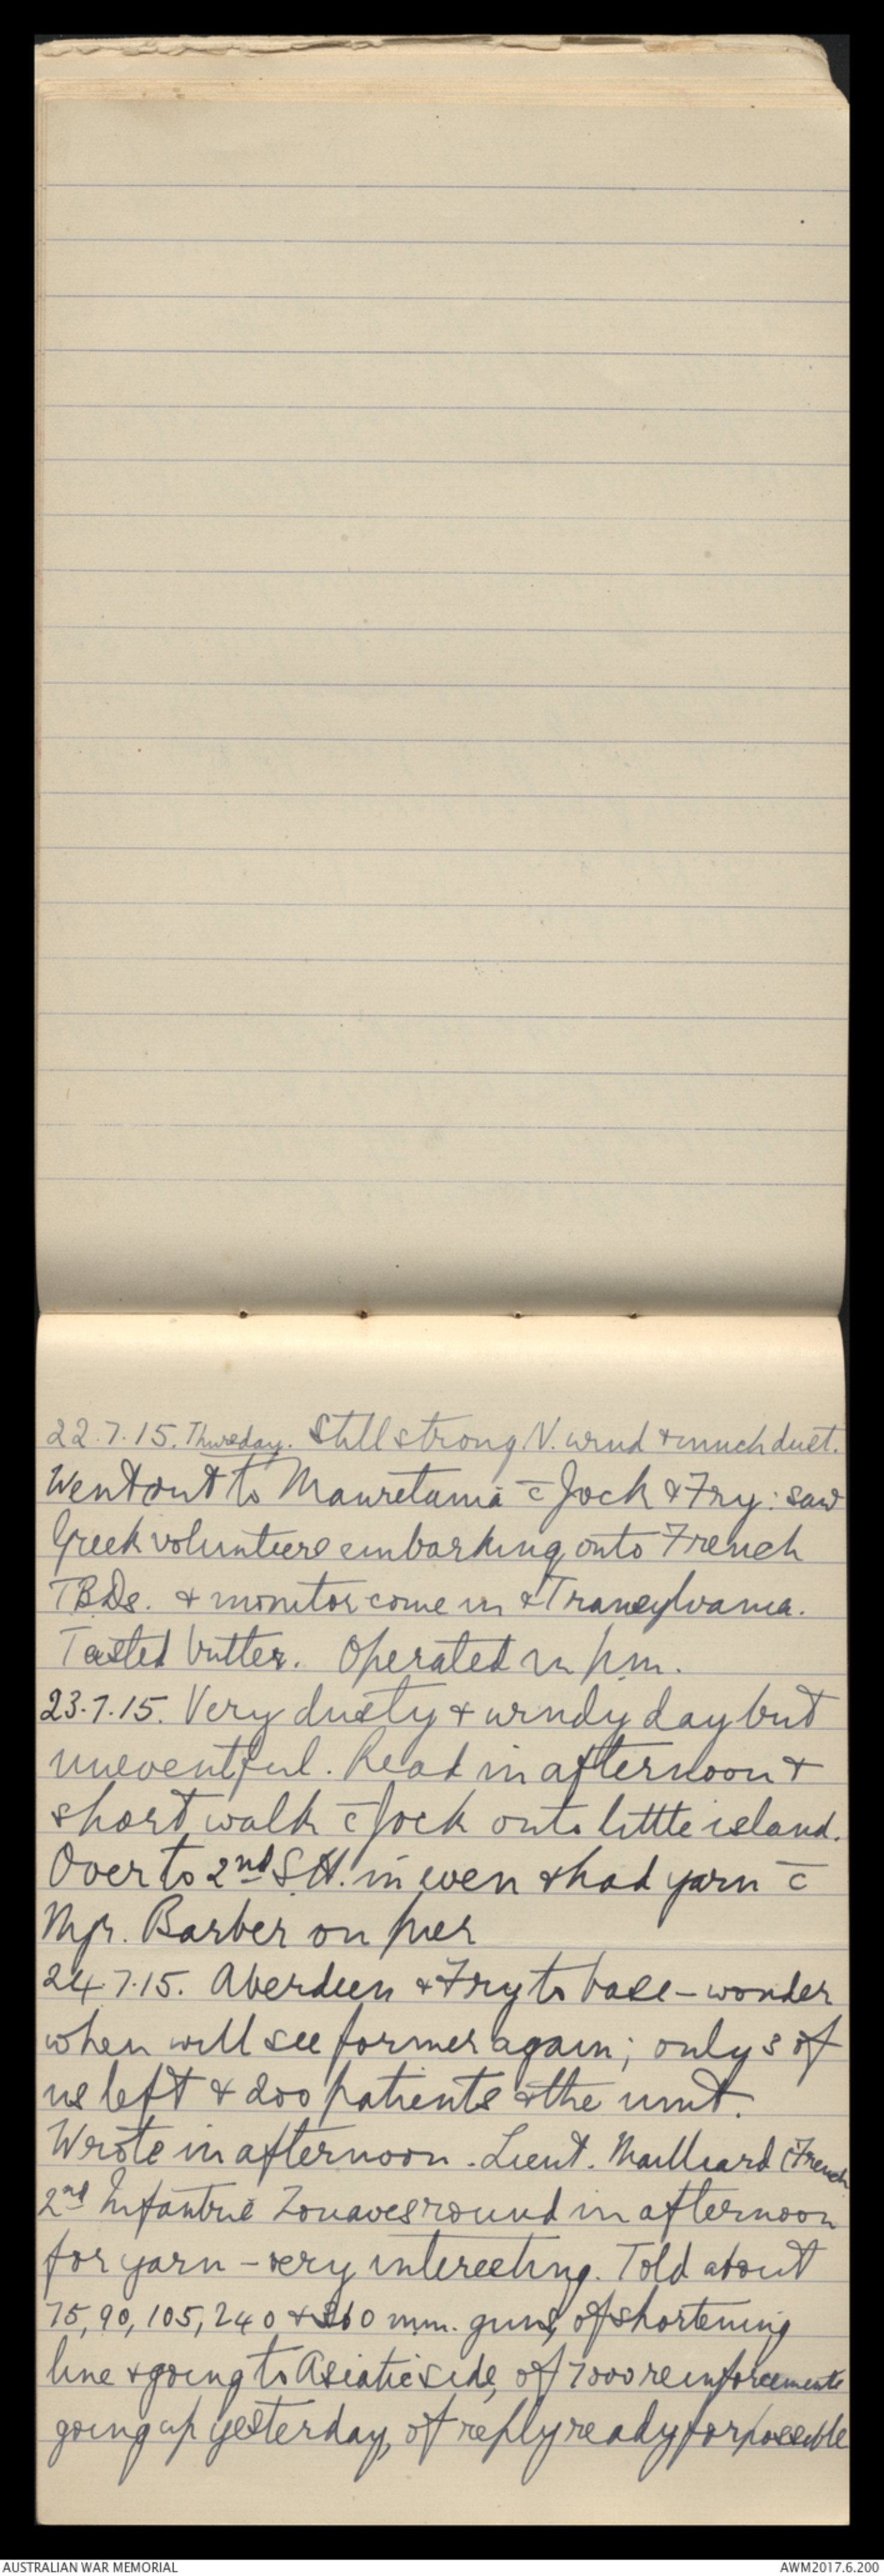 22.7.15. Thursday. Still strong N. wind & much dust.
Went out to Mauretania c̄ Jock & Fry: saw
Greek volunteers embarking onto French
T.B.Ds. & monitor come in & Transylvania.
Tasted butter. Operated in p.m.
23.7.15. Very dusty & windy day but
uneventful. Read in afternoon &
short walk c̄ Jock onto little island.
Over to 2nd S.H. in even & had yarn c̄
Mjr. Barber on pier
24.7.15. Aberdeen & Fry to base - wonder
when will see former again; only 3 of
us left & 200 patients & the unit.
Wrote in afternoon. Lieut. Mailliard (French
2nd Infantrie Zouaves round in afternoon
for yarn - very interesting. Told about
75, 90, 105, 240 & 360 mm. guns, of shortening
line & going to Asiatic side, of 7000 reinforcements
going up yesterday, of reply ready for possible
AUSTRALIAN WAR MEMORIAL
AWM2017.6.200